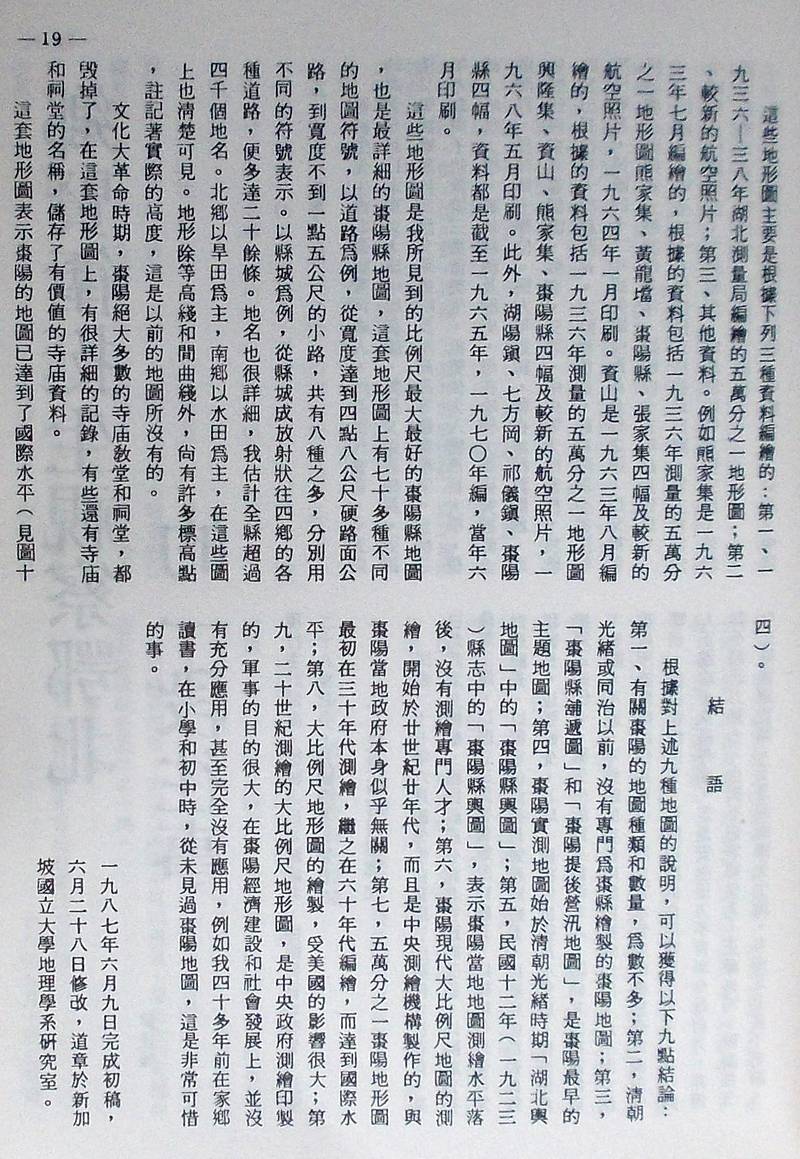 — 19 —
這些地形圖主要是根據下列三種資料編繪的：第一、一
九三六—三八年湖北測量局編繪的五萬分之一地形圖；第二
、較新的航空照片；第三、其他資料。例如熊家集是一九六
三年七月編繪的，根據的資料包括一九三六年測量的五萬分
之一地形圖熊家集、黃龍壋、棗陽縣、張家集四幅及較新的
航空照片，一九六四年一月印刷。資山是一九六三年八月編
繪的，根據的資料包括一九三六年測量的五萬分之一地形圖
興隆集、資山、熊家集、棗陽縣四幅及較新的航空照片，一
九六八年五月印刷。此外，湖陽鎮、七方岡、祁儀鎮、棗陽
縣四幅，資料都是截至一九六五年，一九七〇年編，當年六
月印刷。
這些地形圖是我所見到的比例尺最大最好的棗陽縣地圖
，也是最詳細的棗陽縣地圖，這套地形圖上有七十多種不同
的地圖符號，以道路爲例，從寬度達到四點八公尺硬路面公
路，到寬度不到一點五公尺的小路，共有八種之多，分別用
不同的符號表示。以縣城爲例，從縣城成放射狀往四鄉的各
種道路，便多達二十餘條。地名也很詳細，我估計全縣超過
四千個地名。北鄉以旱田爲主，南鄉以水田爲主，在這些圖
上也清楚可見。地形除等高綫和間曲綫外，尙有許多標高點
，註記著實際的高度，這是以前的地圖所沒有的。
文化大革命時期，棗陽絕大多數的寺庙敎堂和祠堂，都
毀掉了，在這套地形圖上，有很詳細的記錄，有些還有寺庙
和祠堂的名稱，儲存了有價值的寺庙資料。
這套地形圖表示棗陽的地圖已達到了國際水平（見圖十
四）。
結語
根據對上述九種地圖的說明，可以獲得以下九點結論：
第一、有關棗陽的地圖種類和數量，爲數不多；第二，清朝
光緒或同治以前，沒有專門爲棗縣繪製的棗陽地圖；第三，
「棗陽縣舖遞圖」和「棗陽提後營汛地圖」，是棗陽最早的
主題地圖；第四，棗陽實測地圖始於清朝光緒時期「湖北輿
地圖」中的「棗陽縣輿圖」；第五，民國十二年（一九二三
）縣志中的「棗陽縣輿圖」，表示棗陽當地地圖測繪水平落
後，沒有測繪專門人才；第六，棗陽現代大比例尺地圖的測
繪，開始於廿世紀廿年代，而且是中央測繪機構製作的，與
棗陽當地政府本身似乎無關；第七，五萬分之一棗陽地形圖
最初在三十年代測繪，繼之在六十年代編繪，而達到國際水
平；第八，大比例尺地形圖的繪製，受美國的影響很大；第
九，二十世紀測繪的大比例尺地形圖，是中央政府測繪印製
的，軍事的目的很大，在棗陽經濟建設和社會發展上，並沒
有充分應用，甚至完全沒有應用，例如我四十多年前在家鄉
讀書，在小學和初中時，從未見過棗陽地圖，這是非常可惜
的事。
一九八七年六月九日完成初稿，
六月二十八日修改，道章於新加
坡國立大學地理學系硏究室。